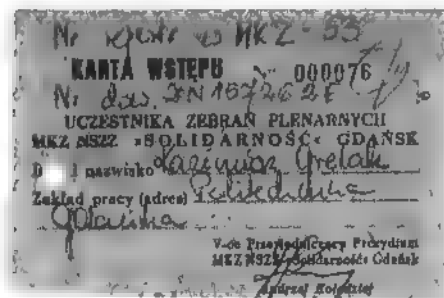 Nr rejestr. w MKZ - 53
KARTA WSTĘPU 000076
Nr dow. ZN 1672628
UCZESTNIKA ZEBRAŃ PLENARNYCH
MKZ NSZZ »SOLIDARNOŚĆ« GDAŃSK
nazwisko Kazimierz
Zakład pracy (adres) Politechnika
Gdańska
V-ce Przewodniczący Prezydium
MKZ NSZZ »Solidarność« Gdańsk
Andrzej Kołodziej